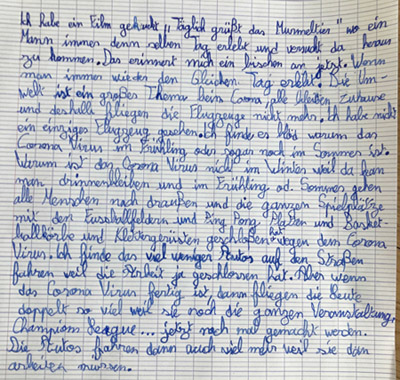 Ich habe ein Film gekuckt „Täglich grüßt das Murmeltier" wo ein
Mann immer denn selben Tag erlebt und versucht da heraus
zu kommen. Das erinnert mich ein bischen an jetzt. Wenn
man immer wieder den Gleichen Tag erlebt. Die Um-
welt ist ein großes Thema beim Corona, alle bleiben Zuhause
und deshalb fliegen die Flugzeuge nicht mehr. Ich habe nicht
ein einziges Flugzeug gesehen. Ich finde es blöd warum das
Corona Virus im Frühling oder sogar noch im Sommer ist.
Warum ist das Corona Virus nicht im Winter weil da kan
man drinnenbleiben und im Frühling od. Sommer gehen
alle Menschen nach draußen und die ganzen Spielplätze
mit den Fussballfeldern und Ping Pong Platten und Basket-
ballkörbe und Klettergerüsten geschloßen hat wegen dem Corona
Virus. Ich finde das viel weniger Autos auf den Straßen
fahren weil die Arbeit ja geschlossen hat. Aber wenn
das Corona Virus fertig ist dann fliegen die Leute
doppelt so viel weil sie noch die ganzen Veranstaltung,
Champions League... jetzt noch mal gemacht werden.
Die Autos fahren dann auch viel mehr weil sie dan
arbeiten müssen.